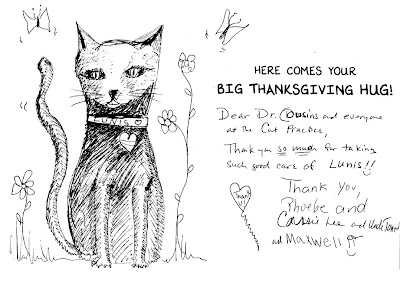 LUNIS
HERE COMES YOUR
BIG THANKSGIVING HUG!
Dear Dr. Cousins and everyone
at the Cat Practice,
Thank you so much for taking
such good care of Lunis!!
Thank you,
Phoebe and
Cassie Lee and Uncle
and Maxwell